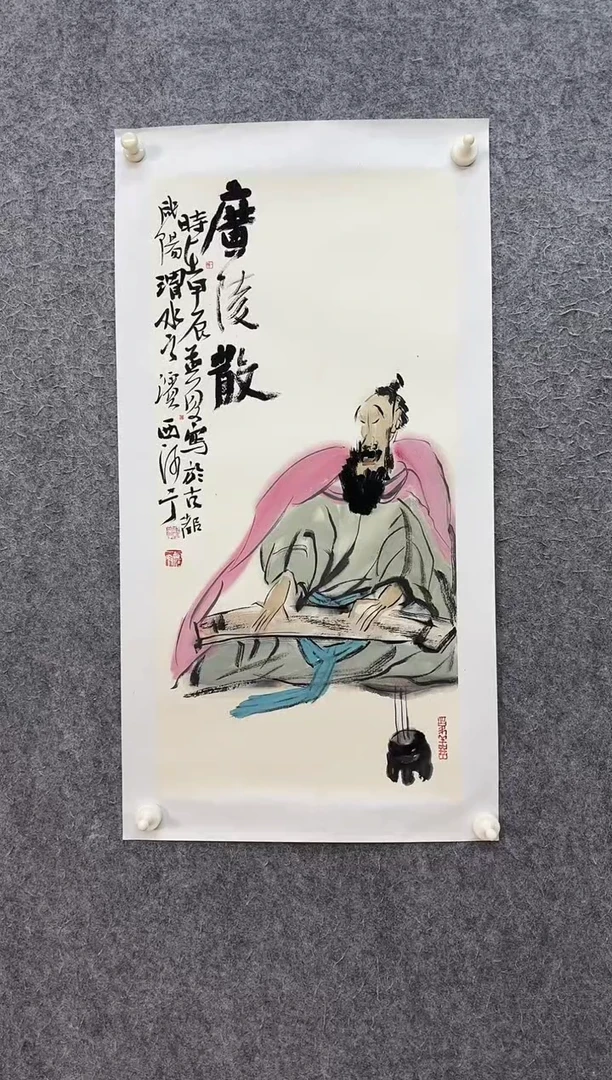 廣陵散
時在甲辰月寫於古都
咸陽渭水之濱西